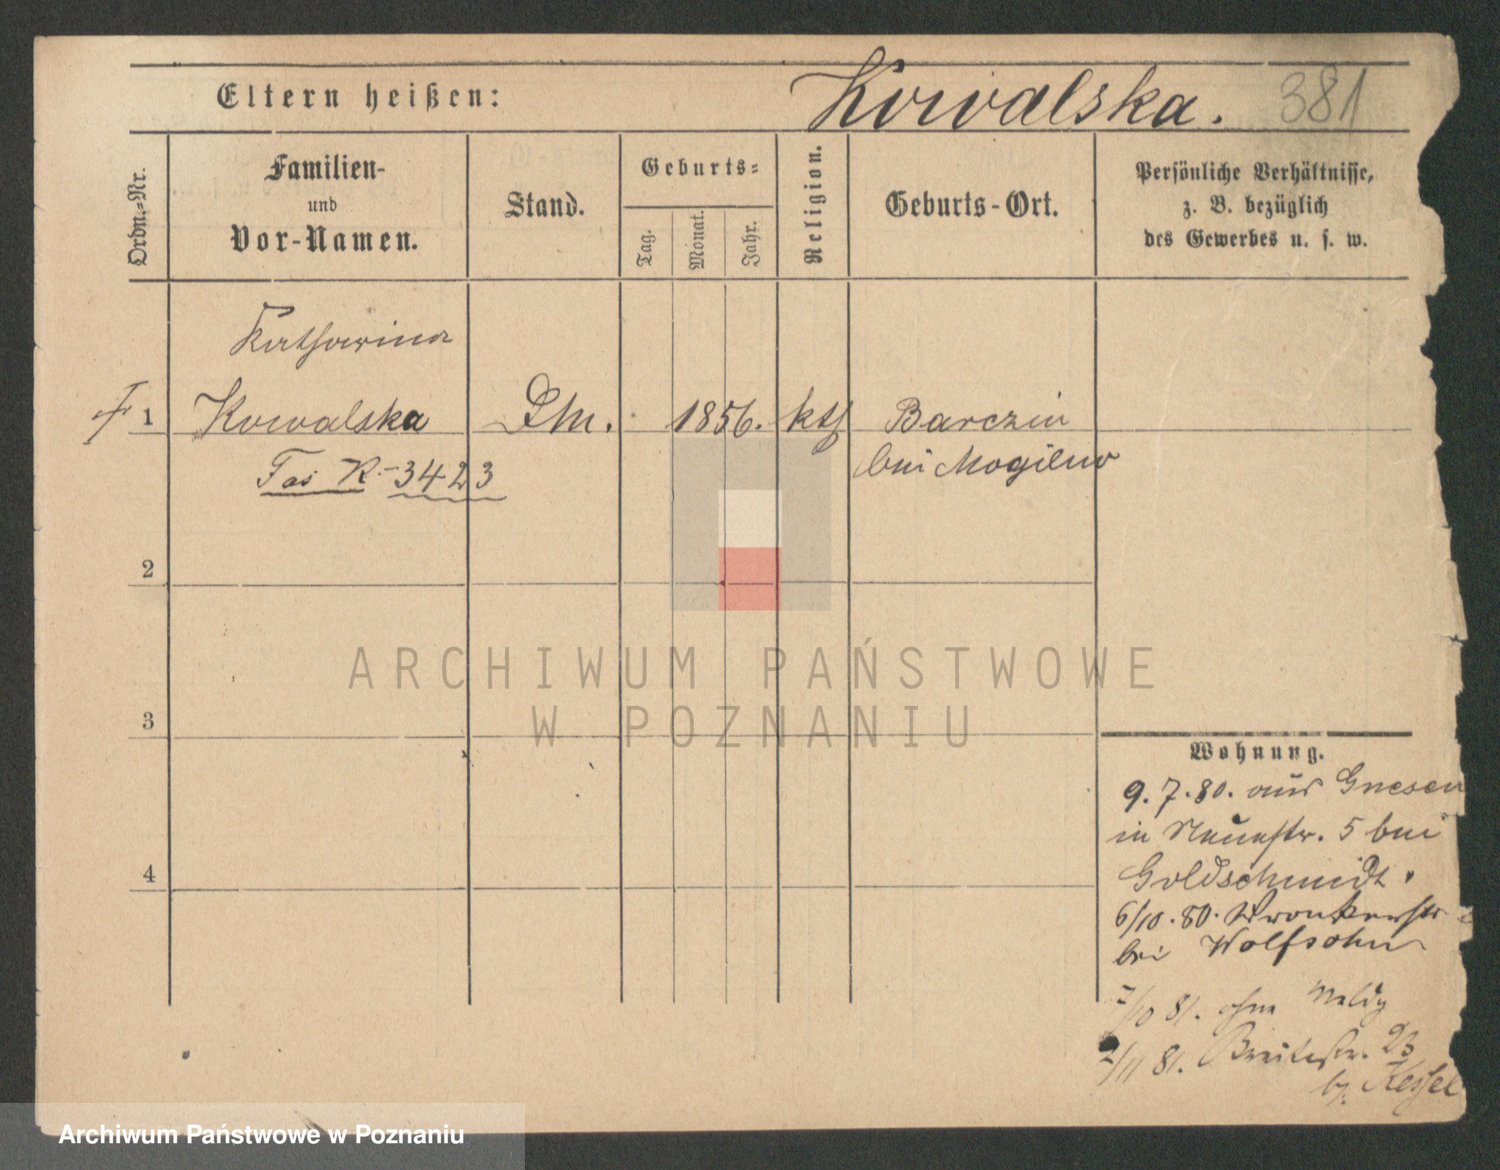 Eltern heißen: Kowalska. 381
Ordn.-Nr.
Familien-
und
Vor-Namen.
Stand.
Geburts-
Tag.
Monat.
Jahr.
Religion.
Geburts-Ort.
Persönliche Verhältnisse,
z. B. bezüglich
des Gewerbes u. s. w.
Katharina
1 Kowalska Dm. 1856. kth Barczin
bei Mogilno
R. 3423
2
3
4
ARCHIWUM PAŃSTWOWE
W POZNANIU
Wohnung.
9. 7. 80. aus Gnesen
in Neuestr. 5 bei
Goldschmidt.
6/10. 80. Wronkerstr
bei Wolfsohn
7/10 81. ohne Meldg
2/11 81. Breitestr. 23
b. Kessel
Archiwum Państwowe w Poznaniu